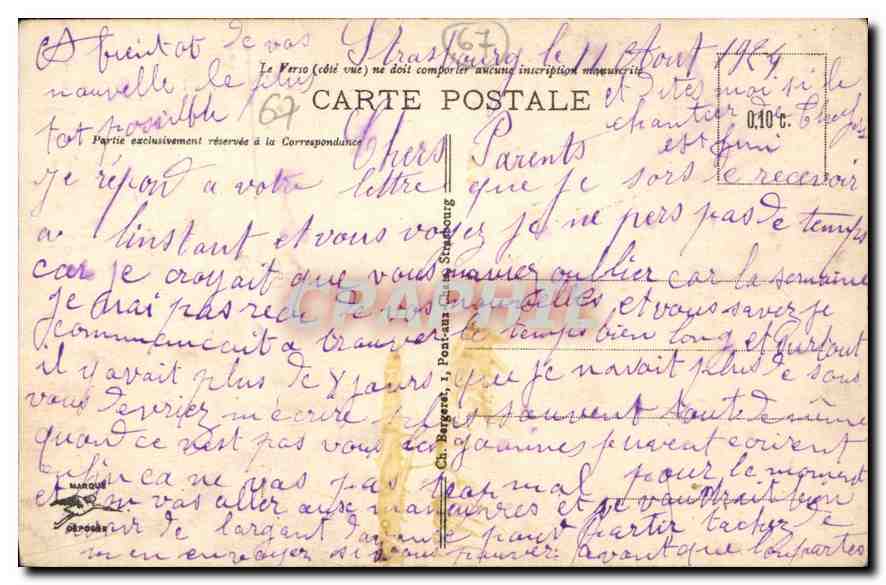 Strasbourg le 11 Aout 1924
67
Le Verso (côté vue) ne doit comporter aucune inscription manuscrite
CARTE POSTALE
67
0,10 c.
Partie exclusivement réservée à la Correspondance
A bientot de vos
nouvelle le plus
tot possible
et dites moi si le
chantier de
est fini
Chers Parents
Je répond a votre lettre que je sors de recevoir
a linstant et vous voyez je ne pers pas de temps
car je croyait que vous maviez oublier car la semaine
je nai pas recu de vos nouvelles et vous savez je
commencait a trouver le temps bien long et surtout
il y avait plus de 8 jours que je navait plus de sous
vous devriez mécrire plus souvent tout de même
quand ce nest pas vous les peuvent ecrirent
enfin ca ne vas pas trop mal pour le moment
et on vas aller aux manœuvres et je voudrait bien
de largent davance pour partir tachez de
men envoyez si vous pouvez avant que
Ch. Bergeret, 1, Pont-aux-Chats, Strasbourg
MARQUE
DÉPOSÉE
CPAPHIL